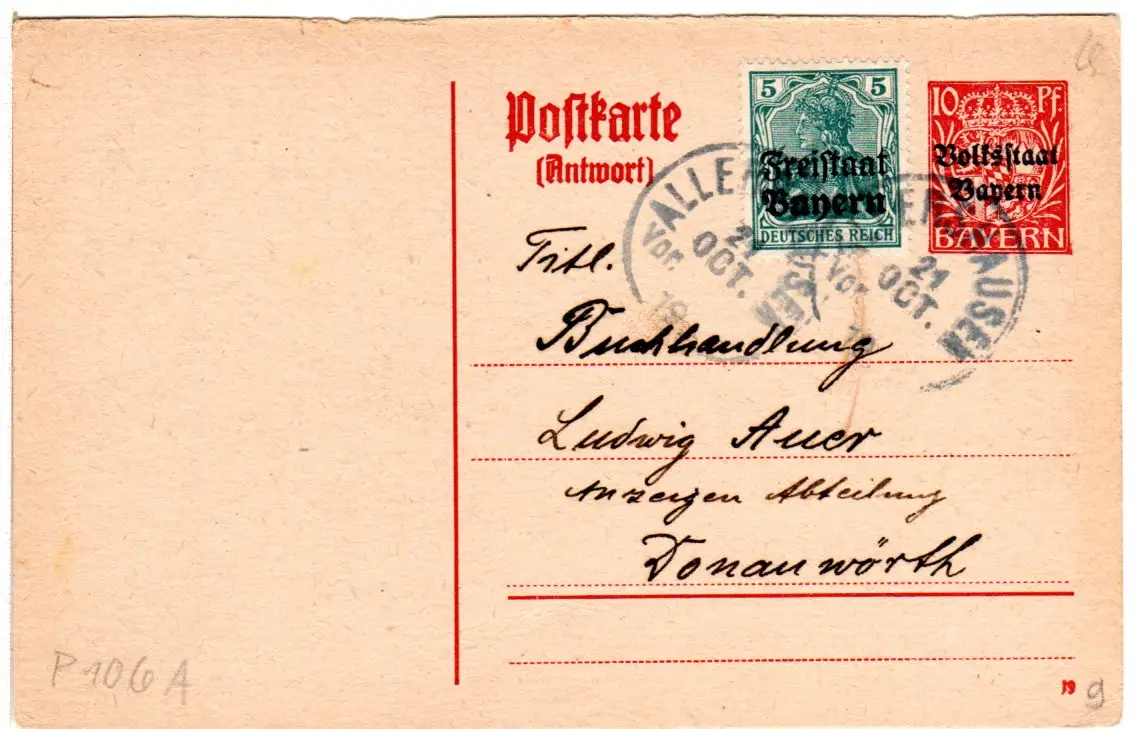 Postkarte
(Antwort)
5 5
Freistaat
Bayern
DEUTSCHES REICH
10 Pf.
Volksstaat
Bayern
BAYERN
21
OCT.
Vor.
21
OCT.
Vor.
Titl.
Buchhandlung
Ludwig Auer
Anzeigen Abteilung
Donauwörth
P 106 A
19
g